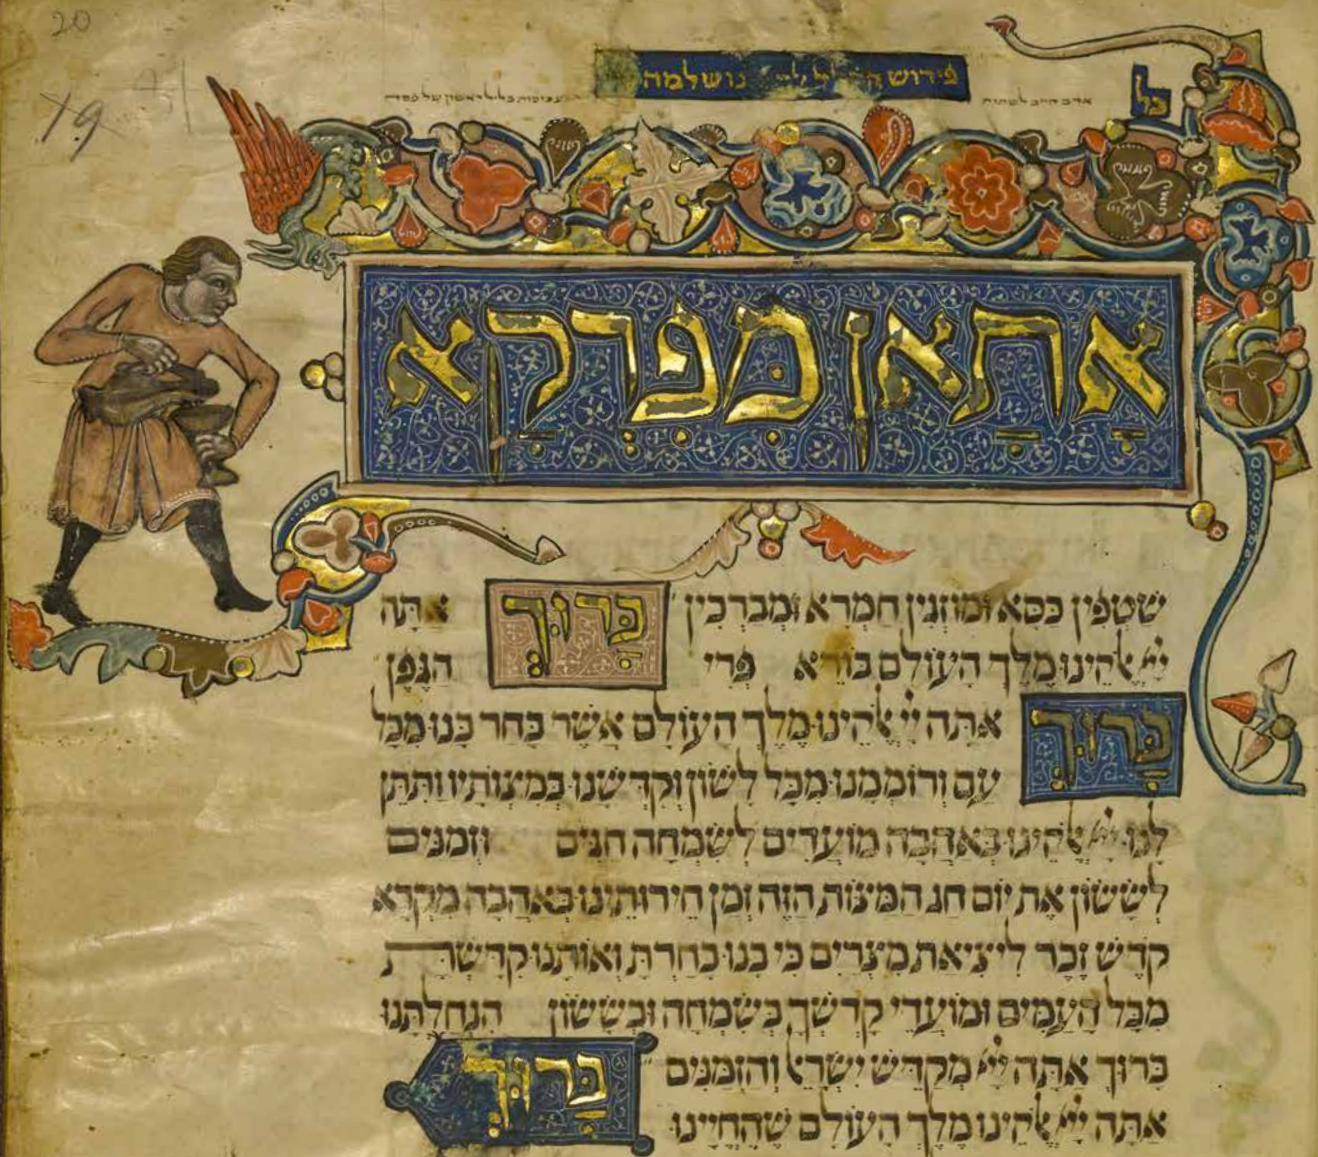 20
פירוש נושלמה
כל
אדם חייב לשתות כוסות בליל ראשון של פסח
אָתָאן מִפִּרְקָא
שטפין כסא ומוזגין חמרא ומברכין בָּרוּךְ אתה
ייי אלהינו מלך העולם בורא פרי הגפן
בָּרוּךְ אתה ייי אלהינו מלך העולם אשר בחר בנו מכל
עם ורוממנו מכל לשון וקדשנו במצותיו ותתן
לנו ייי אלהינו באהבה מועדים לשמחה חגים וזמנים
לששון את יום חג המצות הזה זמן חירותינו באהבה מקרא
קדש זכר ליציאת מצרים כי בנו בחרת ואותנו קדשת
מכל העמים ומועדי קדשך בשמחה ובששון הנחלתנו
ברוך אתה ייי מקדש ישראל והזמנים בָּרוּךְ
אתה ייי אלהינו מלך העולם שהחיינו